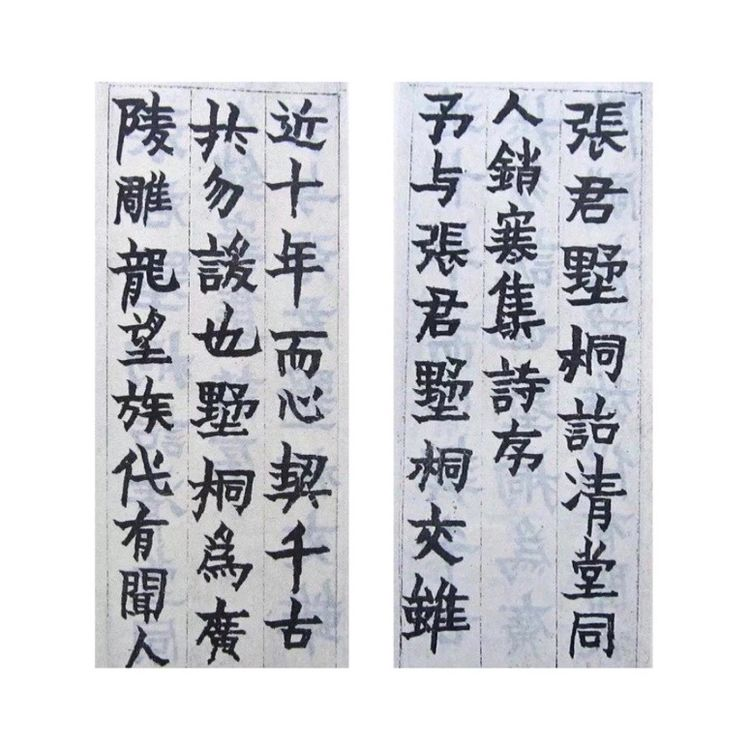 張君墅桐詒清堂同
人銷寒集詩序
予与張君墅桐交雖
近十年而心契千古
共勿諼也墅桐爲廣
陵雕龍望族代有聞人